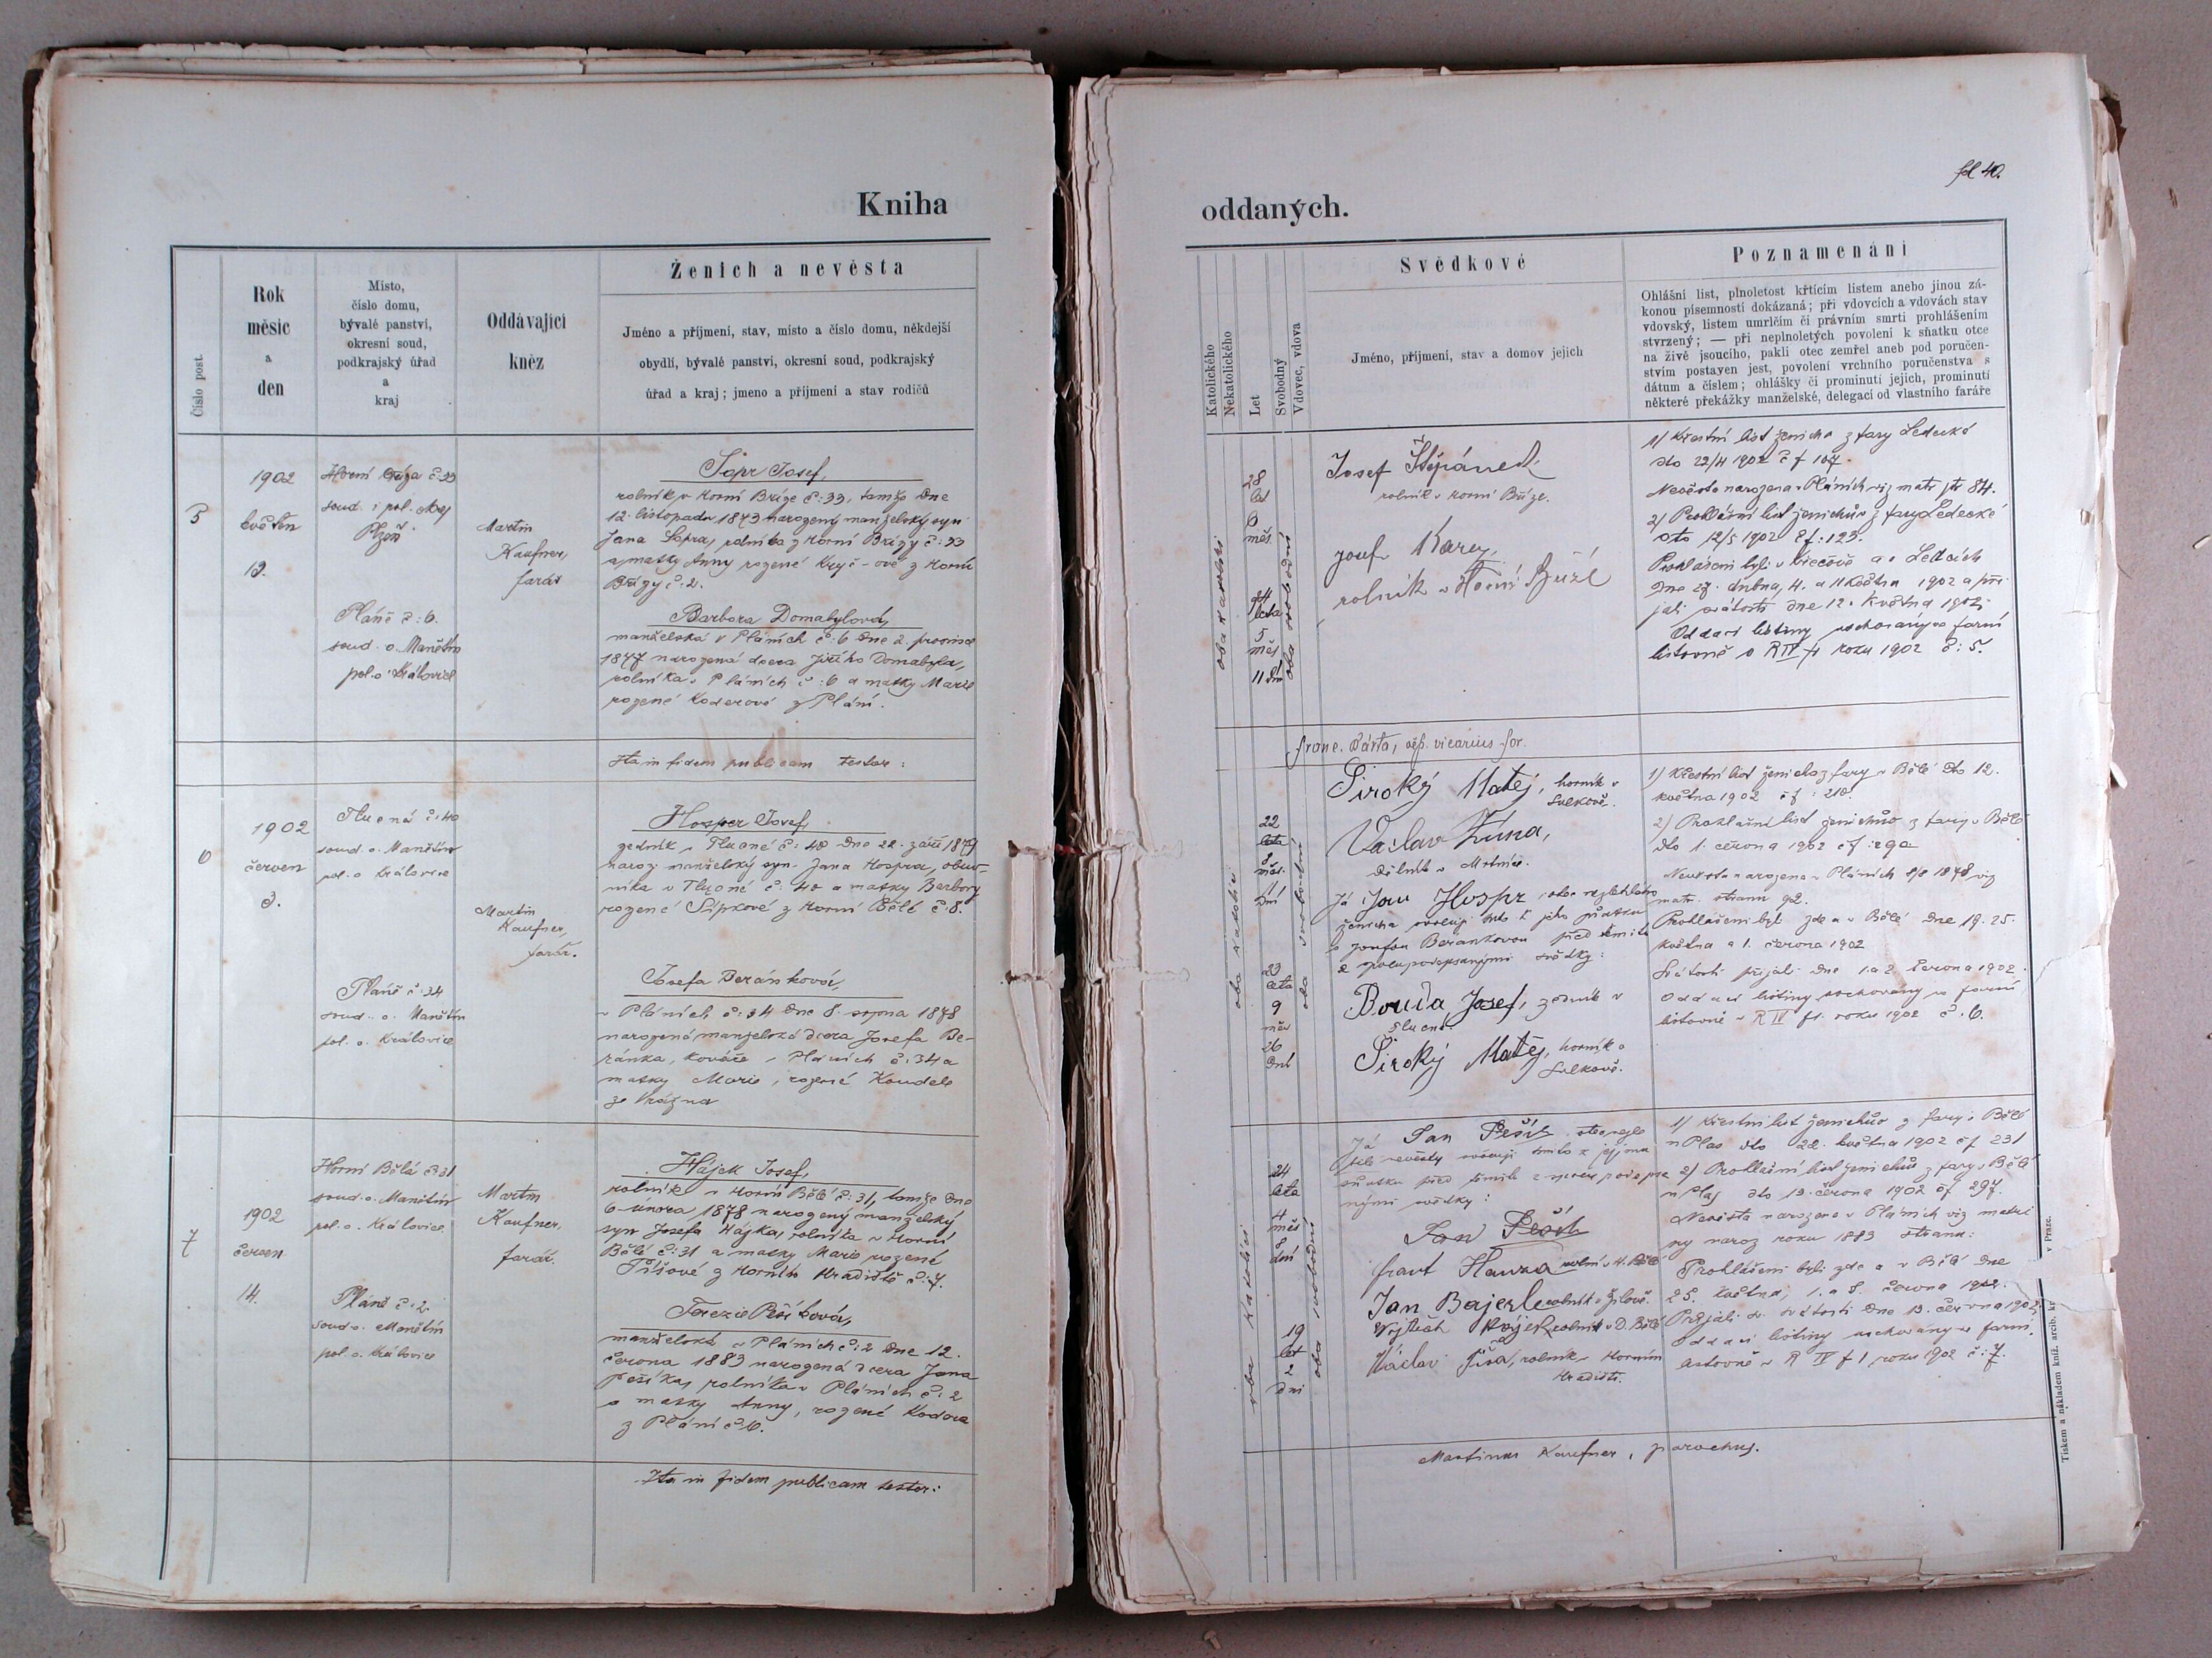 Kniha
Číslo post.
Rok
měsíc
a
den
Místo,
číslo domu,
bývalé panství,
okresní soud,
podkrajský úřad
a
kraj
Oddávající
kněz
Ženich a nevěsta
Jméno a příjmení, stav, místo a číslo domu, někdejší
obydlí, bývalé panství, okresní soud, podkrajský
úřad a kraj; jmeno a příjmení a stav rodičů
5
1902
květen
Horní Bříza č: 33
soud. i pol. okres
Plzeň
Pláně č: 6.
soud. o. Manětín
pol. o. Kralovice
Martin
Kaufner,
farář
Šopr Josef,
rolník v Horní Bříze č: 33, tamže dne
12. listopadu 1873 narozený manželský syn
Jana Šopra, rolníka z Horní Břízy č: 33
a matky Anny rozené Kryč-ové z Horní
Břízy č: 2.
Barbora Domabylová,
manželská v Pláních č: 6 dne 2. prosince
1877 narozená dcera Jiřího Domabyla,
rolníka v Pláních č: 6 a matky Marie
rozené Koderové z Plání.
Ita in fidem publicam testor:
6
1902
červen
3.
Tlucná č: 40
soud. o. Manětín
pol. o. Kralovice
Pláně č: 34
soud. o. Manětín
pol. o. Kralovice
Martin
Kaufner,
farář.
Hosper Josef,
zedník v Tlucné č: 40 dne 22. září 1879
naroz. manželský syn Jana Hospra, obuv-
níka v Tlucné č: 40 a matky Barbory
rozené Šípkové z Horní Bělé č: 8.
Josefa Beránková,
v Pláních č: 34 dne 8. srpna 1878
narozená manželská dcera Josefa Be-
ránka, kováře v Pláních č: 34 a
matky Marie, rozené Koudele
ze Vrážna
7
1902
červen
14.
Horní Bělá č: 31
soud. o. Manětín
pol. o. Kralovice
Pláně č: 2.
soud o. Manětín
pol. o. Kralovice
Martin
Kaufner,
farář.
Hájek Josef,
rolník v Horní Bělé č: 31, tamže dne
6. února 1878 narozený manželský
syn Josefa Hájka, rolníka v Horní
Bělé č: 31 a matky Marie rozené
Tišové z Horního Hradiště č: 7.
Terezie Pešíková,
manželská v Pláních č: 2 dne 12.
června 1883 narozená dcera Jana
Pešíka, rolníka v Pláních č: 2
a matky Anny, rozené Kodera
z Plání č: 6.
Ita in fidem publicam testor:
fol 40.
oddaných.
Katolického
Nekatolického
Let
Svobodný
Vdovec, vdova
Svědkové
Jméno, příjmení, stav a domov jejich
Poznamenání
Ohlášní list, plnoletost křticím listem anebo jinou zá-
konou písemností dokázaná; při vdovcích a vdovách stav
vdovský, listem umrlčím či právním smrti prohlášením
stvrzený; — při neplnoletých povolení k sňatku otce
na živě jsoucího, pakli otec zemřel aneb pod poručen-
stvím postaven jest, povolení vrchního poručenstva s
dátum a číslem; ohlášky či prominutí jejich, prominutí
některé překážky manželské, delegaci od vlastního faráře
oba katolíci
28
let
6
měs.
24
leta
5
měs.
11 dní
oba svobodní
Josef Štěpánek
rolník v Horní Bříze.
Josef Karey,
rolník v Horní Bříze
1) Křestní list ženicha z fary Ledecké
dto 22/4 1902 č f 107.
Nevěsta narozena v Pláních viz matr. str 84.
2) Prohlášní list ženichův z fary Ledecké
dto 12/5 1902 č f: 123.
Prohlášeni byli v Křečově a v Ledcích
dne 27. dubna, 4. a 11 Května 1902 a při-
jali svátosti dne 12. Května 1902.
Oddací listiny uschovány ve farní
listovně v R IV f1 roku 1902 č: 5.
Franc. Bárta, vicarius for.
oba katolíci
22
leta
8
měs.
dní
23
leta
9
měs
26
dní
oba svobodní
Široký Matěj, horník v
Sulkově.
Václav Žůna,
dělník v Mrtníce.
Já Jan Hospr, otec nezletilého
ženicha svoluji tuto k jeho sňatku
s Josefou Beránkovou před těmito
spolupodepsanými svědky:
Bouda Josef, zedník v
Tlucné
Široký Matěj, horník v
Sulkově.
1) Křestní list ženicha z fary v Bělé dto 12.
května 1902 č f: 210.
2) Prohlašní list ženichův z fary v Bělé
dto 1. června 1902 č f:
Nevěsta narozena v Pláních 8/8 1878 viz
matr. stranu 92.
Prohlášeni byli zde a v Bělé dne 19. 25.
května a 1. června 1902
Svátosti přijali dne 1. a 2. června 1902.
Oddací listiny uschovány ve farní
listovně v R IV f1. roku 1902 č. 6.
oba katolíci
24
leta
4
měs
8
dní
19
let
2
dni
oba svobodní
Já Jan Pešík, otec nezle-
tilé nevěsty svoluji tímto k jejímu
sňatku před těmito spolu podepsa-
nými svědky:
Jan Pešík
Frant Hauza rolník v H. Bělé
Jan Bajerle rolník v Žilově.
Vojtěch Hájek rolník v D. Bělé
Václav Tiša, rolník v Horním
Hradišti.
1) Křestní list ženichův z fary v Bělé
u Plas dto 22. května 1902 č f 231
2) Prohlašní list ženichův z fary v Bělé
u Plas dto 12. června 1902 čf 297.
Nevěsta narozena v Pláních viz matri
ny naroz roku 1883 stranu:
Prohlášeni byli zde a v Bělé dne
25. Května, 1. a 8. června 1902.
Přijali sv. svátosti dne 13. června 1902.
Oddací listiny uschovány ve farní
listovně v R IV f1 roku 1902 č: 7.
Martinus Kaufner, parochus.
Tiskem a nákladem kníž. arcib. kn v Praze.